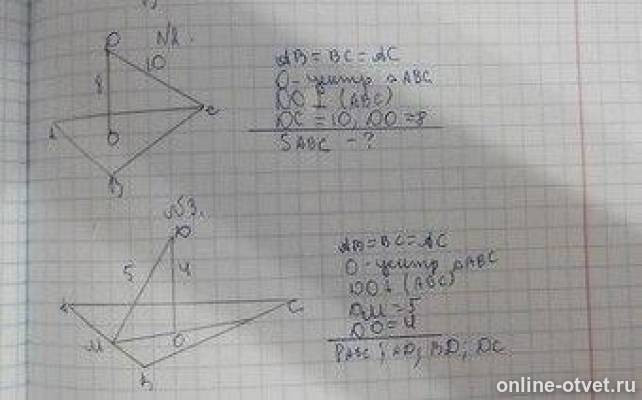 №2.
D
10
8
A
O
C
B
AB = BC = AC
O - центр △ABC
DO ⊥ (ABC)
DC = 10, DO = 8
SABC - ?
№3.
D
5
4
A
C
M
O
B
AB = BC = AC
O - центр △ABC
DO ⊥ (ABC)
DM = 5
DO = 4
PABC; AD; BD; DC
online-otvet.ru